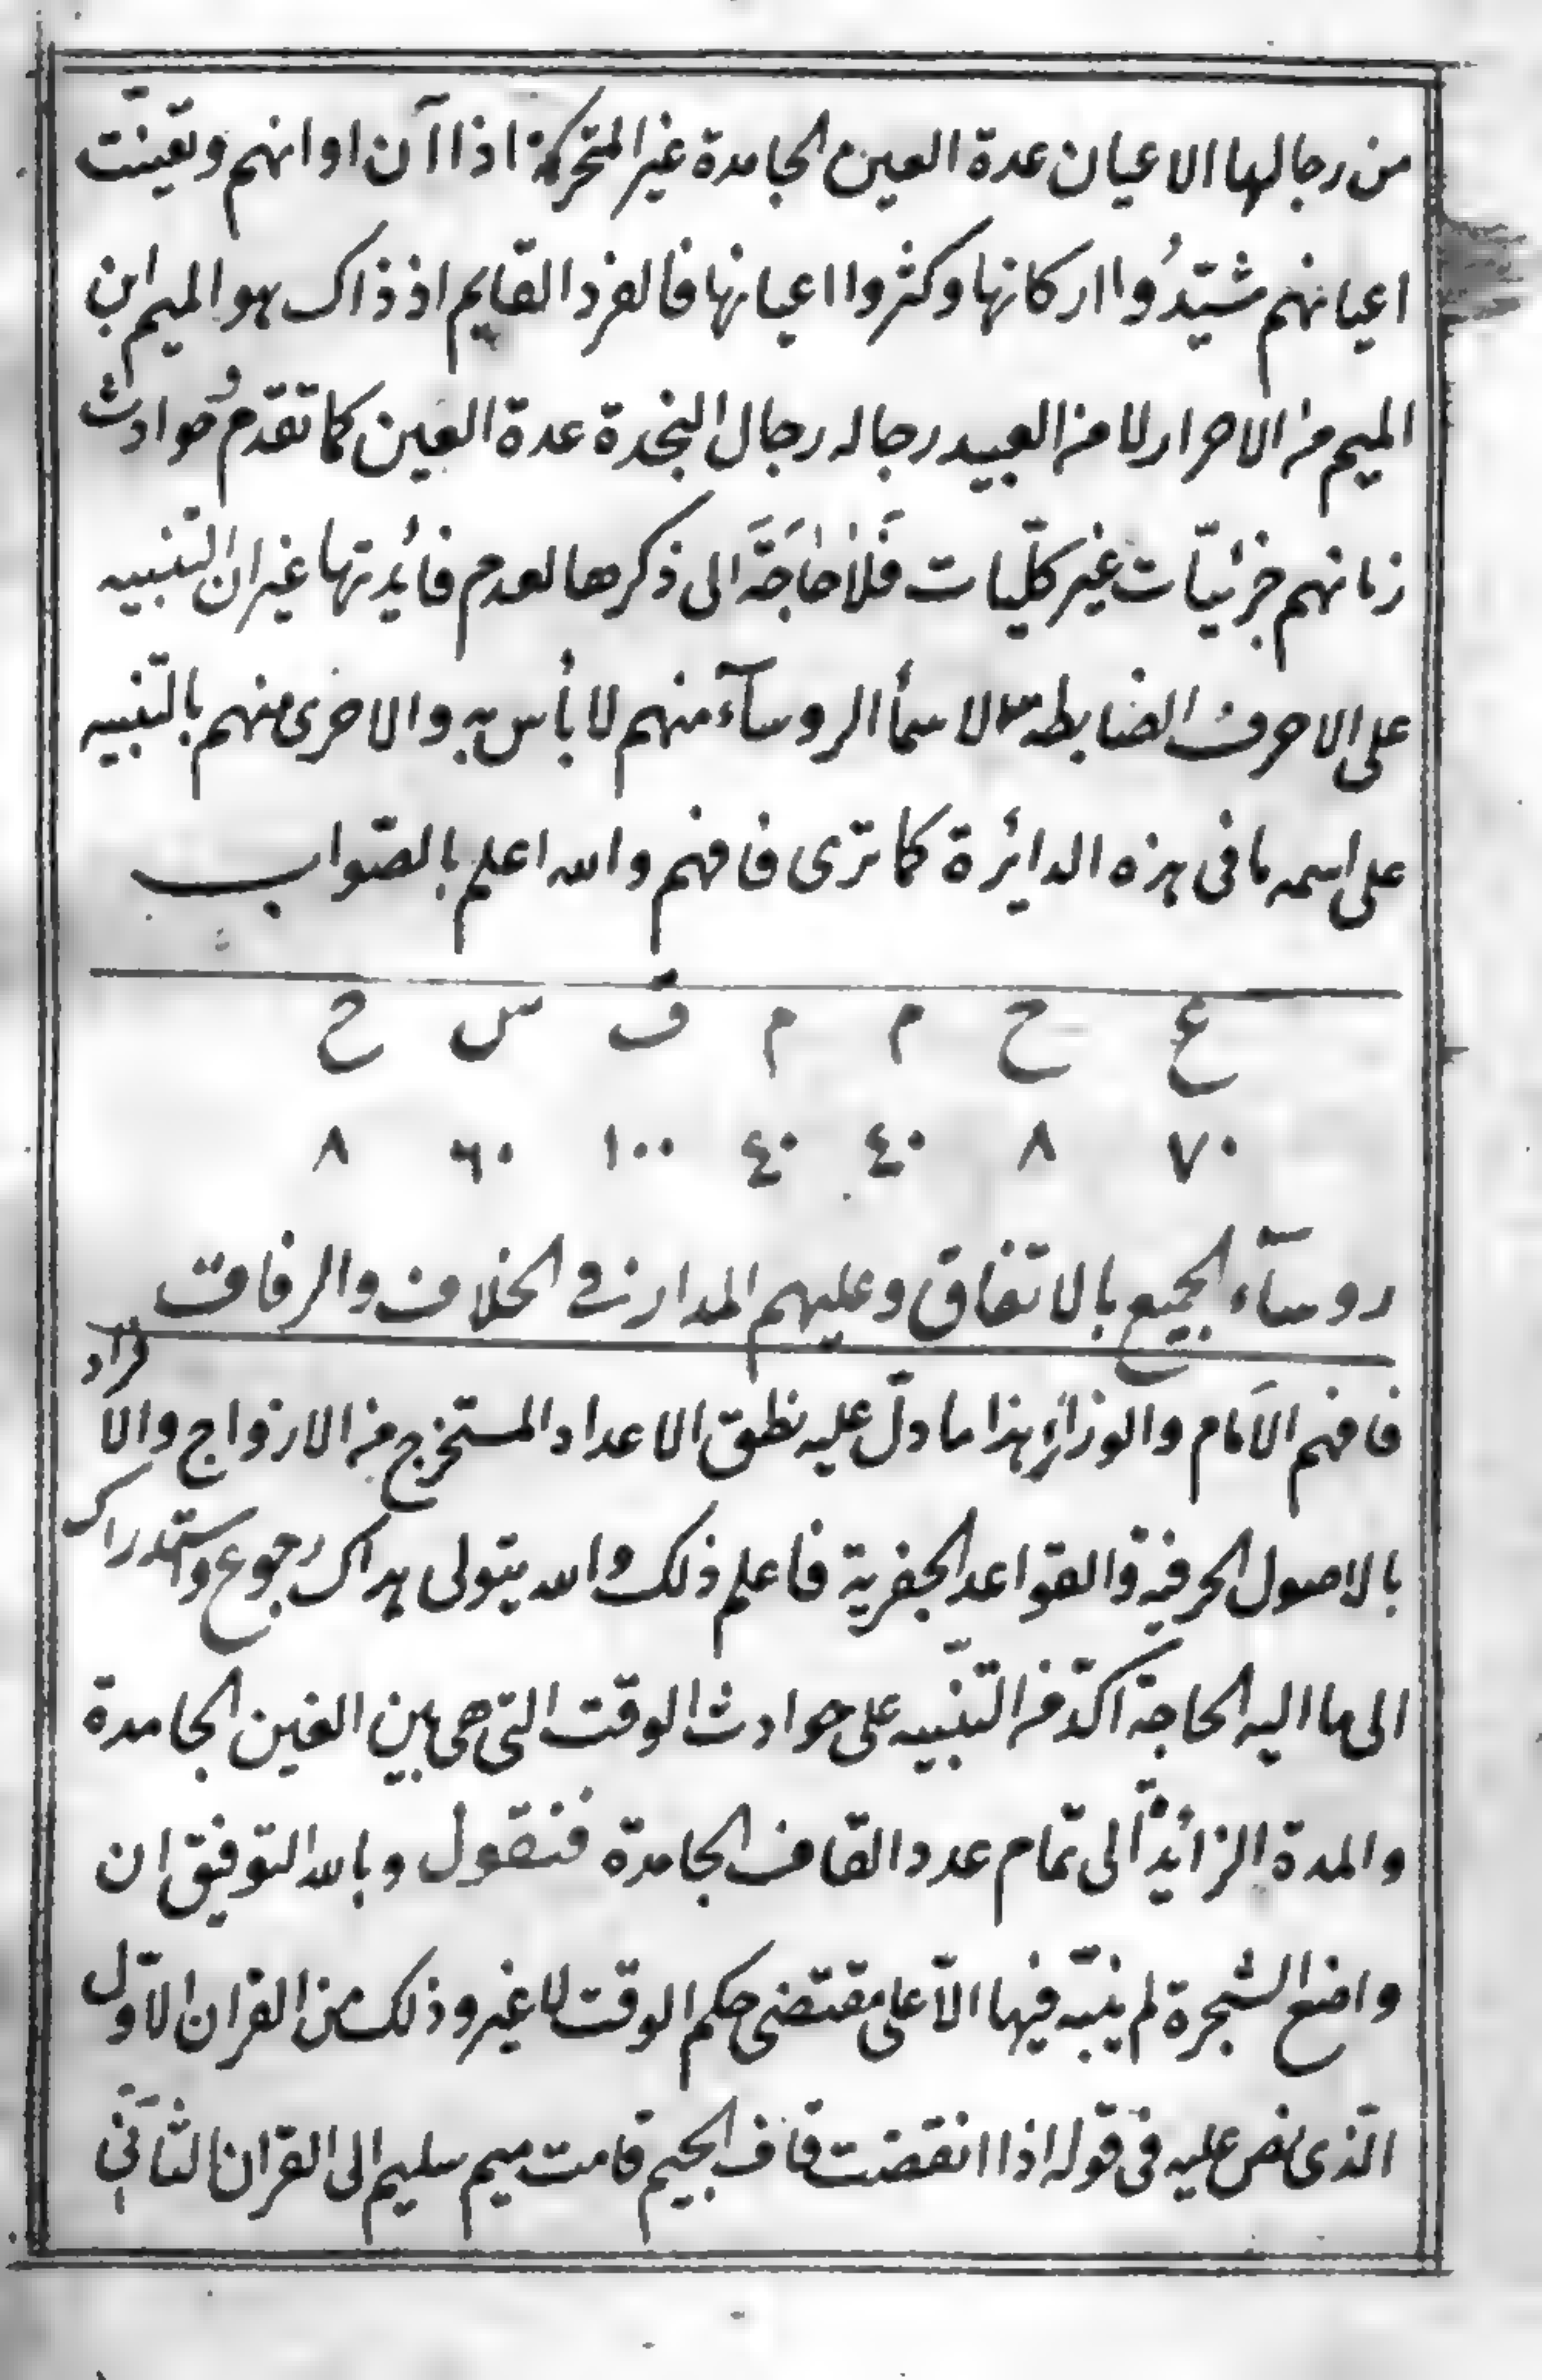 من رجالها الاعيان عدة العين الجامدة غير المتحركة اذا آن اوانهم وتعينّت
اعيانهم شيّدُوا اركانها وكثروا اعيانها فالفرد القايم اذ ذاك هو الميم ابن
الميم من الاحرار لا من العبيد رجاله رجال النجدة عدة العين كما تقدم وحوادث
زمانهم جزئيّات غير كلّيات فَلاَ حَاجَةَ الى ذكرها لعدم فائدتها غير ان التّنبيه
على الاحرف الضابطة لاسمآ الروسآء منهم لا بأس به والاحرى منهم بالتّنبيه
على اسمه ما فى هذه الدائرة كما ترى فافهم والله اعلم بالصّواب
ع ح م م ق س ح
٧٠ ٨ ٤٠ ٤٠ ١٠٠ ٦٠ ٨
روسآء الجميع بالاتفاق وعليهم المدار فى الخلاف والرفاق
فافهم الامام والوزائر هذا ما دلّ عليه نطق الاعداد المستخرج من الازواج والافراد
بالاصول الحرفية والقواعد الجفرية فاعلم ذلك والله يتولى هداك رجوع واستدراك
الى ما اليه الحاجة اكّد من التّنبيه على حوادث الوقت التى هى بين الغين الجامدة
والمدة الزائدة الى تمام عدد القاف الجامدة فنقول وبالله التوفيق ان
واضع الشجرة لم ينبّه فيها الاّ على مقتضى حكم الوقت لا غير وذلك من القران الاوّل
الّذى نص عليه فى قوله اذا انقضت قاف الجيم قامت ميم سليم الى القران الثّانى